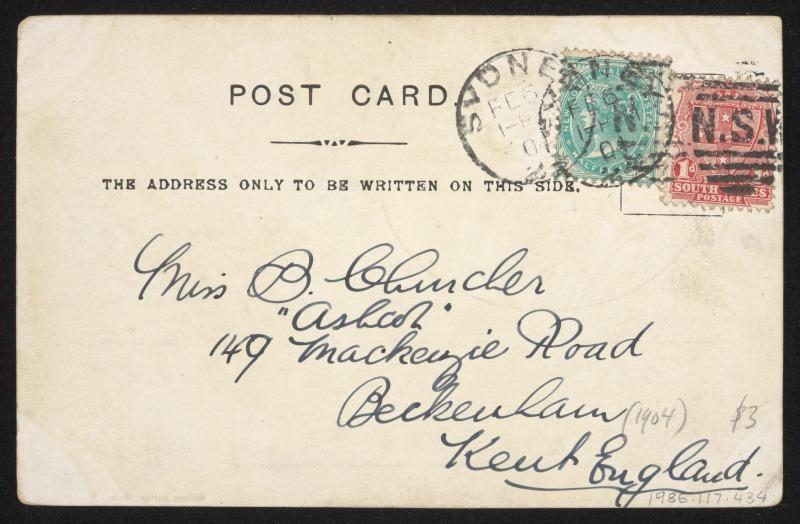 POST CARD.
THE ADDRESS ONLY TO BE WRITTEN ON THIS SIDE.
SYDNEY
FE 6
1-P
04
N.S.W
1d
SOUTH
POSTAGE
Miss B. Churcher
"Ascot"
149 Mackenzie Road
Beckenham (1904) $3
Kent England.
1986.117.434